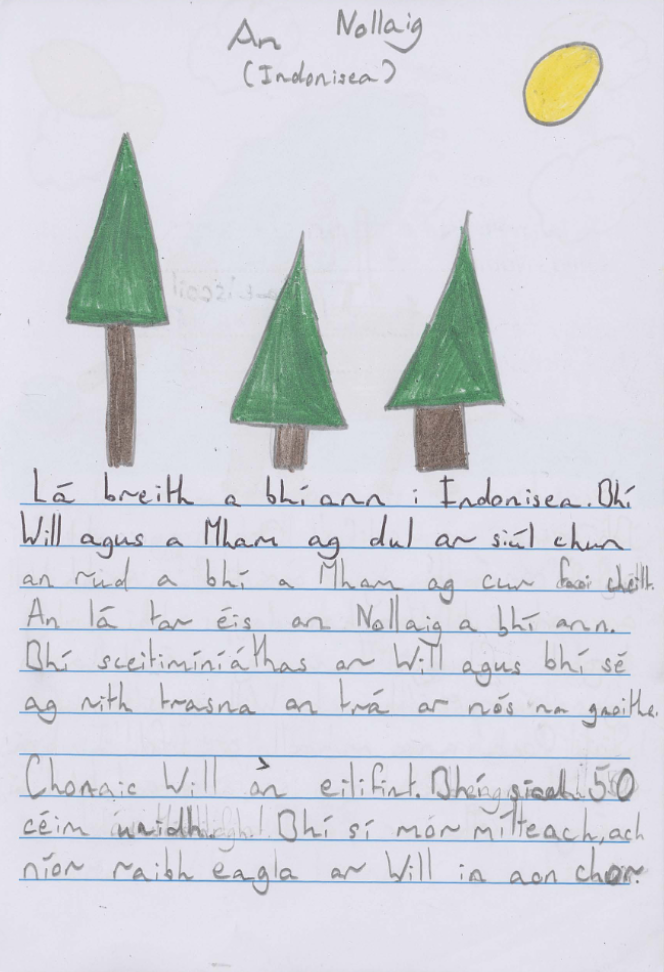 An Nollaig
(Indonisea)
Lá breith a bhí ann i Indonisea. Bhí
Will agus a Mham ag dul ar siúl chun
an rud a bhí a Mham ag cur faoi cheilt.
An lá tar éis an Nollaig a bhí ann.
Bhí sceitimíníáthas ar Will agus bhí sé
ag rith trasna an trá ar nós na gaoithe.
Chonaic Will an eilifint. Bhí 50
céim Bhí sí mór millteach, ach
níor raibh eagla ar Will in aon chor.